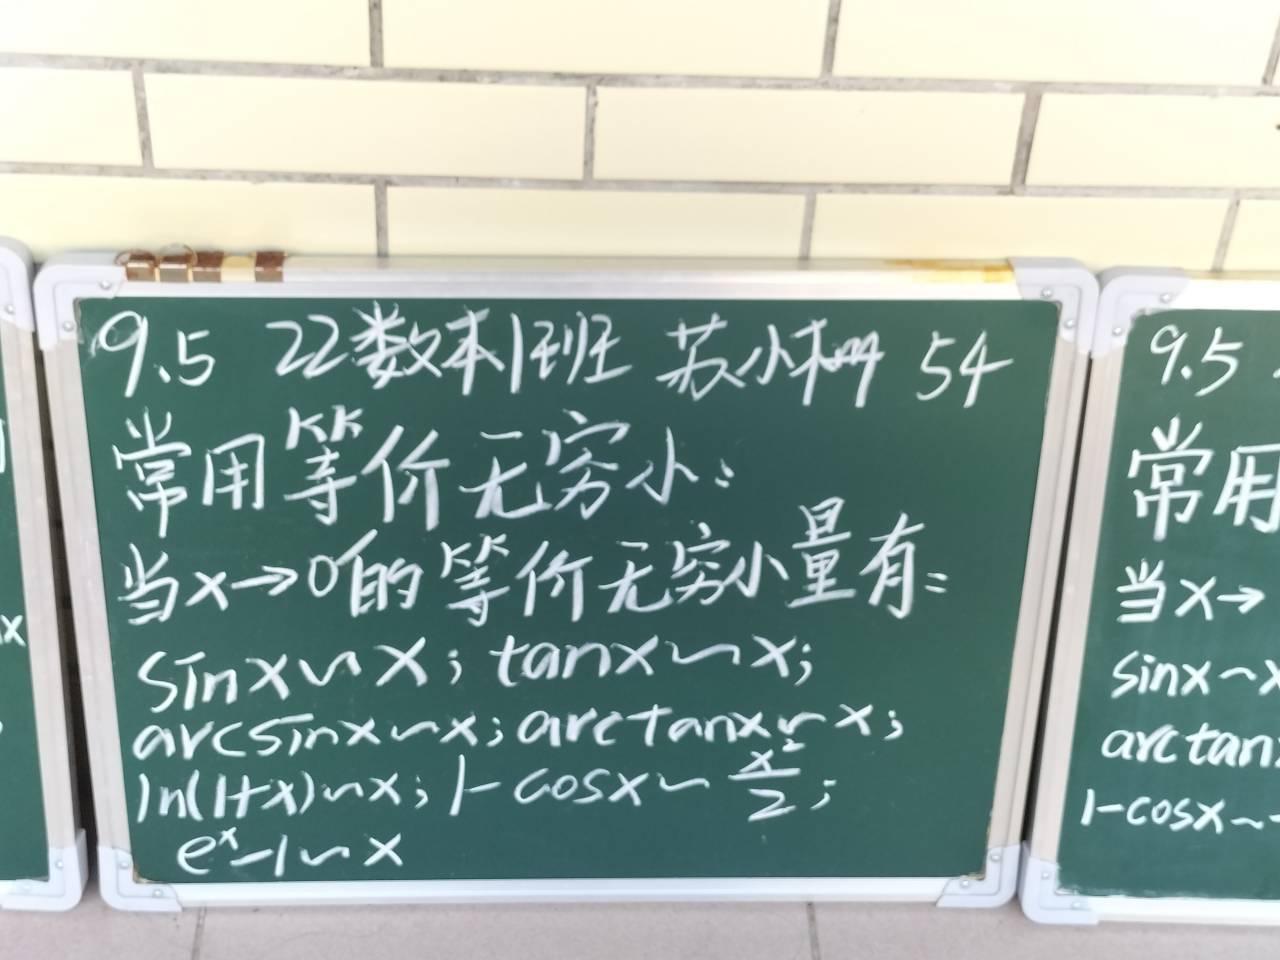 9.5 22数本1班 苏小栅 54
常用等价无穷小:
当x→0的等价无穷小量有:
sinx~x; tanx~x;
arcsinx~x; arctanx~x;
ln(1+x)~x; 1-cosx~x²/2;
eˣ-1~x
9.5
常用
当x→
sinx~x
arctanx
1-cosx~